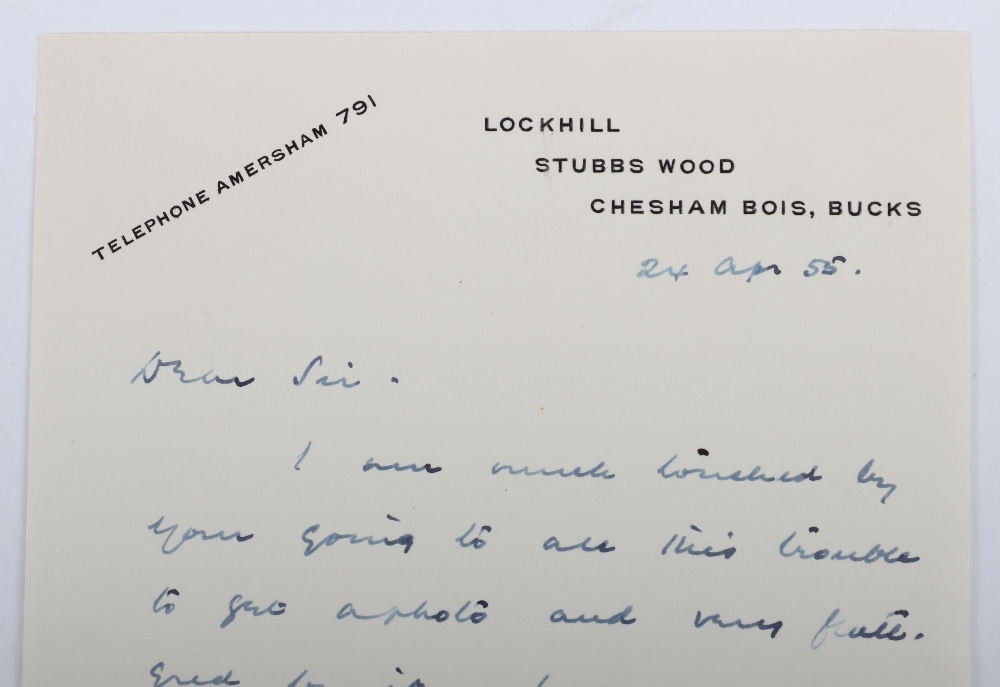 TELEPHONE AMERSHAM 791
LOCKHILL
STUBBS WOOD
CHESHAM BOIS, BUCKS
24 Apr 55.
Dear Sir.
I am much touched by
your going to all this trouble
to get a photo and very flatt-
ered